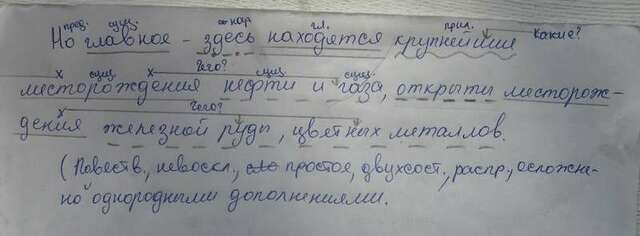 пред. сущ. нар. гл. прил.
Но главное - здесь находятся крупнейшие какие?
х сущ. х чего? сущ. сущ.
месторождения нефти и газа, открыты месторож-
х чего?
дения железной руды, цветных металлов.
(Повеств., невоскл., простое, двухсост., распр., осложне-
но однородными дополнениями.